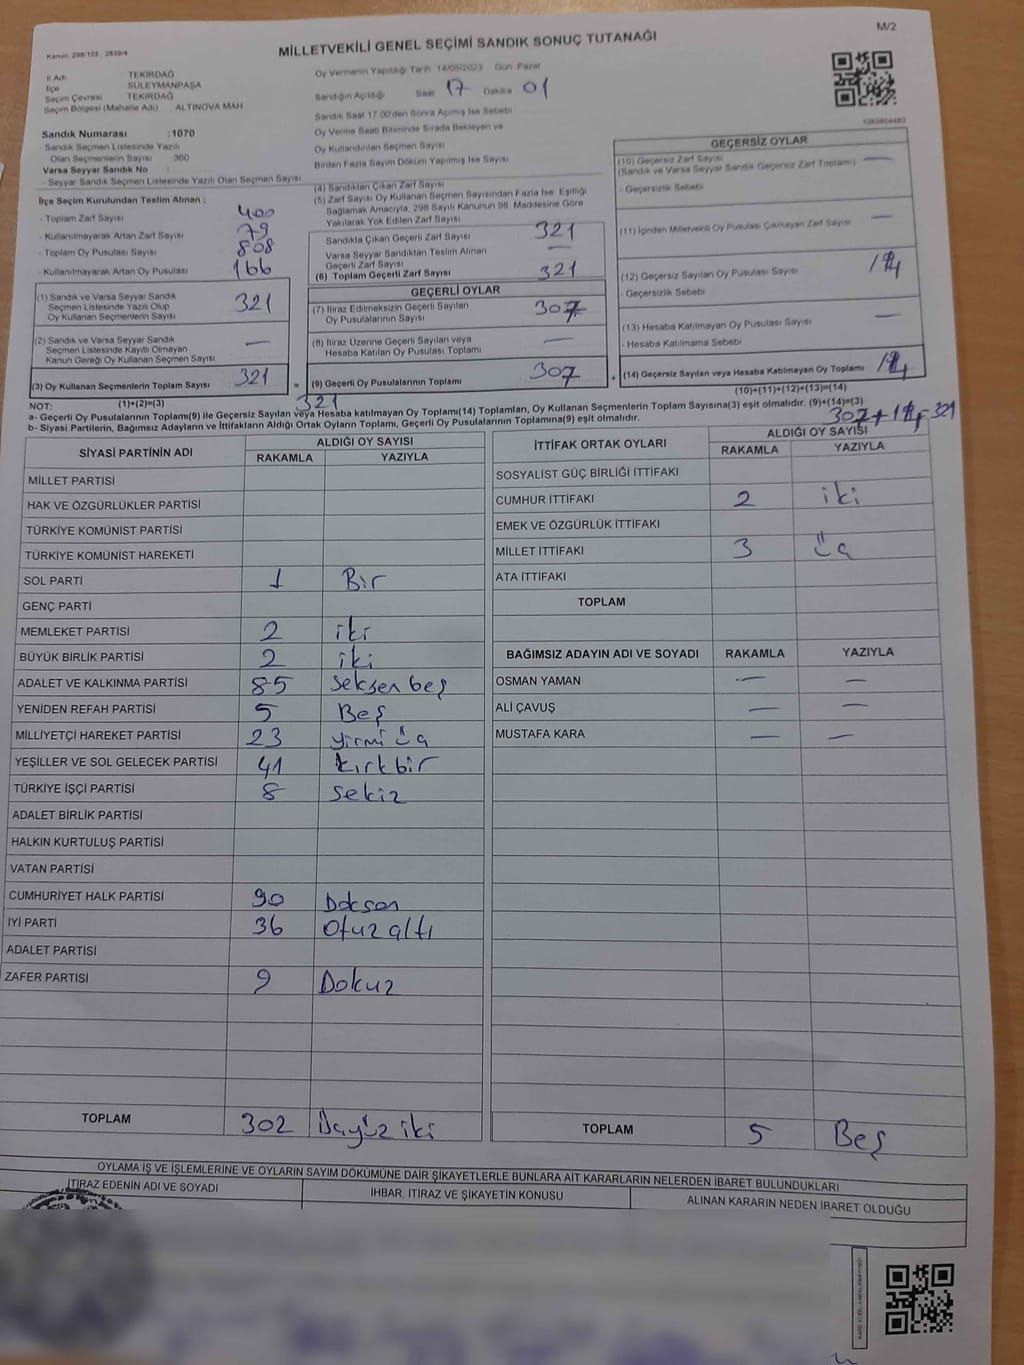 M/2
Kanun: 298/103 . 2839/4
MİLLETVEKİLİ GENEL SEÇİMİ SANDIK SONUÇ TUTANAĞI
İl Adı TEKİRDAĞ
İlçe SÜLEYMANPAŞA
Seçim Çevresi TEKİRDAĞ
Seçim Bölgesi (Mahalle Adı) ALTINOVA MAH
Sandık Numarası :1070
- Sandık Seçmen Listesinde Yazılı
Olan Seçmenlerin Sayısı 360
Varsa Seyyar Sandık No :
- Seyyar Sandık Seçmen Listesinde Yazılı Olan Seçmen Sayısı
Oy Vermenin Yapıldığı Tarih 14/05/2023 Gün Pazar
Sandığın Açıldığı Saat 17 Dakika 01
Sandık Saat 17.00'den Sonra Açımış İse Sebebi
Oy Verme Saati Bitiminde Sırada Bekleyen ve
Oy Kullandırılan Seçmen Sayısı
Birden Fazla Sayım Döküm Yapılmış İse Sayısı
İlçe Seçim Kurulundan Teslim Alınan :
- Toplam Zarf Sayısı 400
- Kullanılmayarak Artan Zarf Sayısı 79
- Toplam Oy Pusulası Sayısı 808
- Kullanılmayarak Artan Oy Pusulası 166
(1) Sandık ve Varsa Seyyar Sandık
Seçmen Listesinde Yazılı Olup
Oy Kullanan Seçmenlerin Sayısı 321
(2) Sandık ve Varsa Seyyar Sandık
Seçmen Listesinde Kayıtlı Olmayan
Kanun Gereği Oy Kullanan Seçmen Sayısı —
(3) Oy Kullanan Seçmenlerin Toplam Sayısı 321 =
(1)+(2)=(3)
(4) Sandıktan Çıkan Zarf Sayısı
(5) Zarf Sayısı Oy Kullanan Seçmen Sayısından Fazla İse, Eşitliği
Sağlamak Amacıyla, 298 Sayılı Kanunun 98. Maddesine Göre
Yakılarak Yok Edilen Zarf Sayısı
Sandıkta Çıkan Geçerli Zarf Sayısı 321
Varsa Seyyar Sandıktan Teslim Alınan
Geçerli Zarf Sayısı —
(6) Toplam Geçerli Zarf Sayısı 321
GEÇERLİ OYLAR
(7) İtiraz Edilmeksizin Geçerli Sayılan
Oy Pusulalarının Sayısı 307
(8) İtiraz Üzerine Geçerli Sayılan veya
Hesaba Katılan Oy Pusulası Toplamı —
(9) Geçerli Oy Pusulalarının Toplamı 307 +
GEÇERSİZ OYLAR
(10) Geçersiz Zarf Sayısı
(Sandık ve Varsa Seyyar Sandık Geçersiz Zarf Toplamı) —
- Geçersizlik Sebebi
(11) İçinden Milletvekili Oy Pusulası Çıkmayan Zarf Sayısı —
(12) Geçersiz Sayılan Oy Pusulası Sayısı 14
- Geçersizlik Sebebi
(13) Hesaba Katılmayan Oy Pusulası Sayısı —
- Hesaba Katılmama Sebebi
(14) Geçersiz Sayılan veya Hesaba Katılmayan Oy Toplamı 14
(10)+(11)+(12)+(13)=(14)
NOT: 321
a- Geçerli Oy Pusulalarının Toplamı(9) ile Geçersiz Sayılan veya Hesaba katılmayan Oy Toplamı(14) Toplamları, Oy Kullanan Seçmenlerin Toplam Sayısına(3) eşit olmalıdır. (9)+(14)=(3)
b- Siyasi Partilerin, Bağımsız Adayların ve İttifakların Aldığı Ortak Oyların Toplamı, Geçerli Oy Pusulalarının Toplamına(9) eşit olmalıdır. 307+14=321
SİYASİ PARTİNİN ADI ALDIĞI OY SAYISI
RAKAMLA YAZIYLA
MİLLET PARTİSİ
HAK VE ÖZGÜRLÜKLER PARTİSİ
TÜRKİYE KOMÜNİST PARTİSİ
TÜRKİYE KOMÜNİST HAREKETİ
SOL PARTİ 1 Bir
GENÇ PARTİ
MEMLEKET PARTİSİ 2 iki
BÜYÜK BİRLİK PARTİSİ 2 iki
ADALET VE KALKINMA PARTİSİ 85 Seksen beş
YENİDEN REFAH PARTİSİ 5 Beş
MİLLİYETÇİ HAREKET PARTİSİ 23 Yirmi üç
YEŞİLLER VE SOL GELECEK PARTİSİ 41 kırkbir
TÜRKİYE İŞÇİ PARTİSİ 8 Sekiz
ADALET BİRLİK PARTİSİ
HALKIN KURTULUŞ PARTİSİ
VATAN PARTİSİ
CUMHURİYET HALK PARTİSİ 90 Doksan
İYİ PARTİ 36 Otuz altı
ADALET PARTİSİ
ZAFER PARTİSİ 9 Dokuz
TOPLAM 302 Üçyüz iki
İTTİFAK ORTAK OYLARI ALDIĞI OY SAYISI
RAKAMLA YAZIYLA
SOSYALİST GÜÇ BİRLİĞİ İTTİFAKI
CUMHUR İTTİFAKI 2 iki
EMEK VE ÖZGÜRLÜK İTTİFAKI
MİLLET İTTİFAKI 3 üç
ATA İTTİFAKI
TOPLAM
BAĞIMSIZ ADAYIN ADI VE SOYADI RAKAMLA YAZIYLA
OSMAN YAMAN — —
ALİ ÇAVUŞ — —
MUSTAFA KARA — —
TOPLAM 5 Beş
OYLAMA İŞ VE İŞLEMLERİNE VE OYLARIN SAYIM DÖKÜMÜNE DAİR ŞİKAYETLERLE BUNLARA AİT KARARLARIN NELERDEN İBARET BULUNDUKLARI
İTİRAZ EDENİN ADI VE SOYADI İHBAR, İTİRAZ VE ŞİKAYETİN KONUSU ALINAN KARARIN NEDEN İBARET OLDUĞU